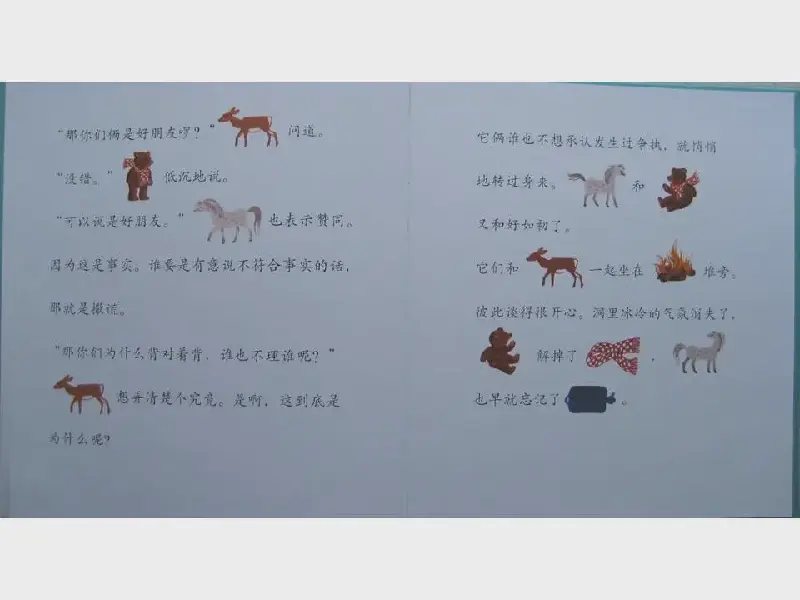 “那你们俩是好朋友啰？”问道。
“没错。”低沉地说。
“可以说是好朋友。”也表示赞同。
因为这是事实。谁要是有意说不符合事实的话，
那就是撒谎。
“那你们为什么背对着背，谁也不理谁呢？”
想弄清楚个究竟。是啊，这到底是
为什么呢？
它俩谁也不想承认发生过争执，就悄悄
地转过身来。和
又和好如初了。
它们和一起坐在堆旁。
彼此谈得很开心。洞里冰冷的气氛消失了，
解掉了，
也早就忘记了。